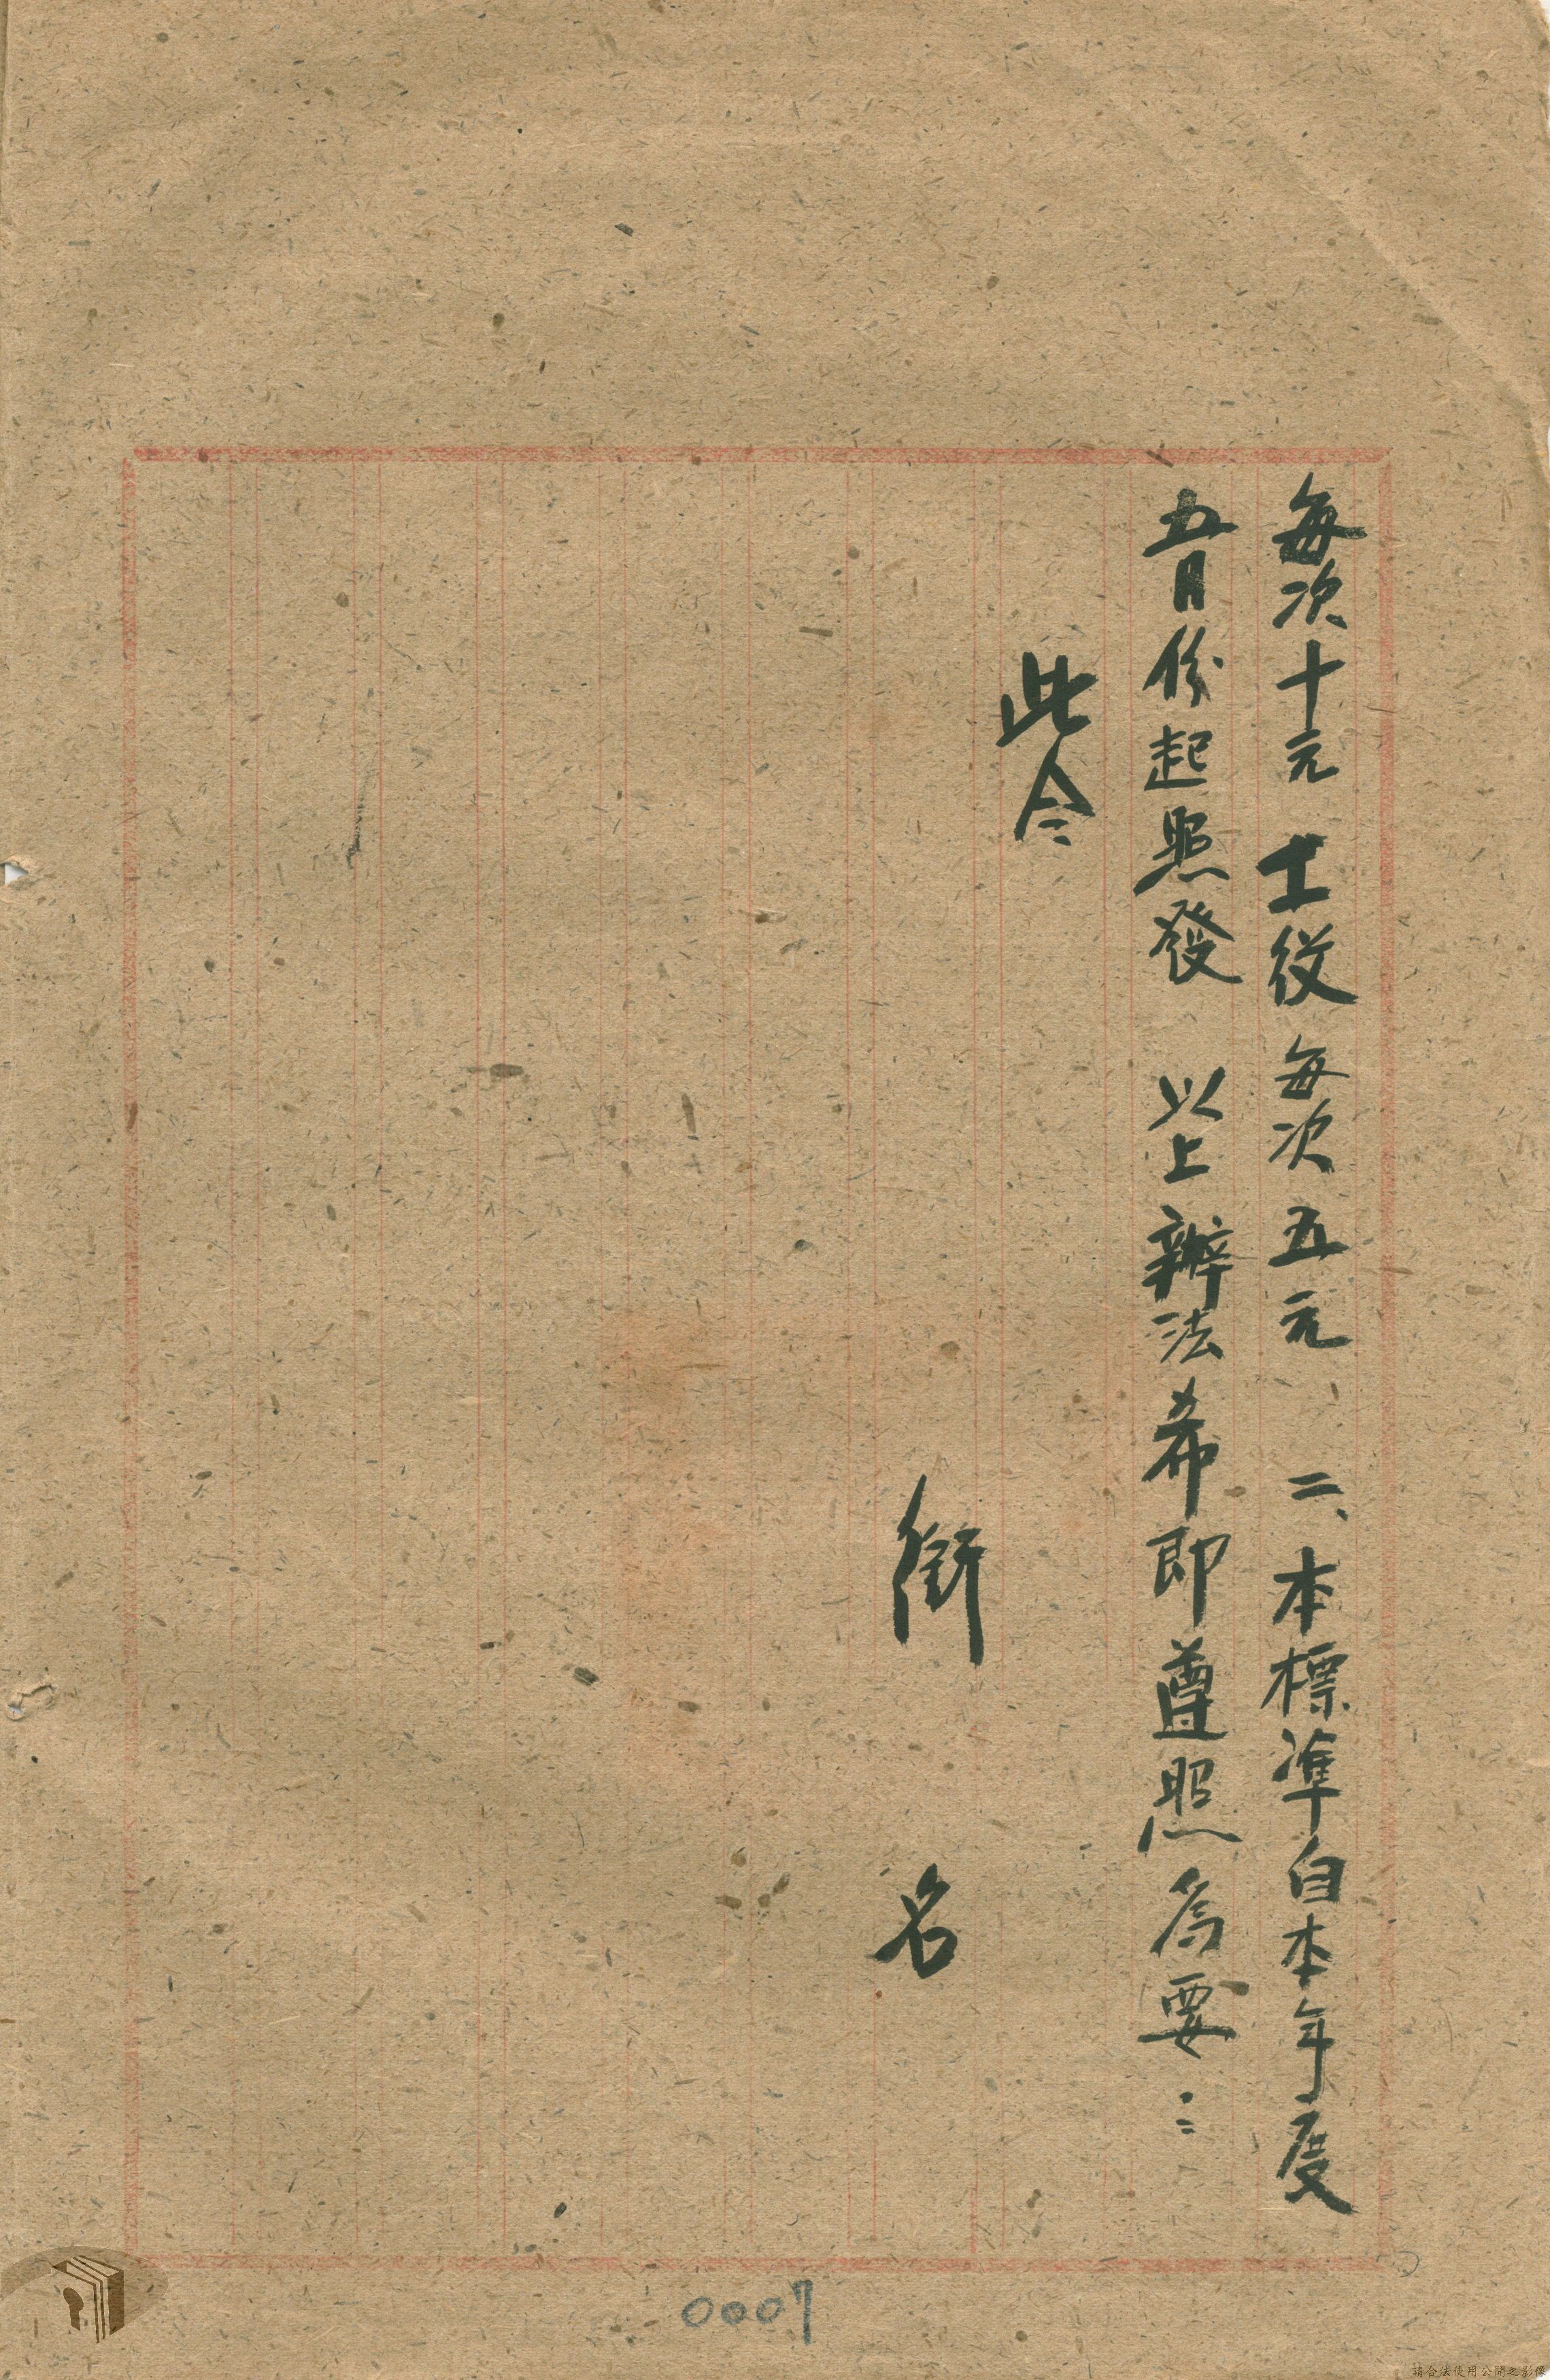 每次十元 士役每次五元 二、本標準自本年度
五月份起照發 以上辦法希即遵照為要
此令
銜 名
0007
請合法使用公開之影像